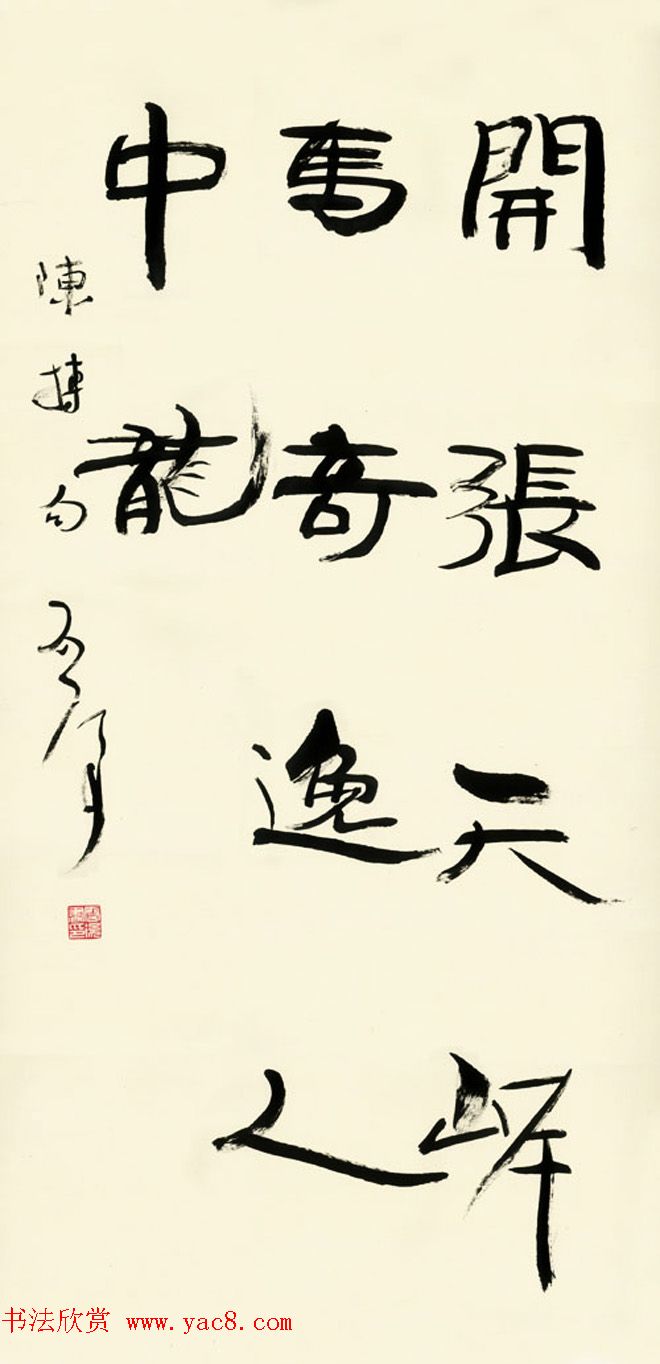 開張天岸
馬奇逸人
中龍
陳摶句
书法欣赏 www.yac8.com